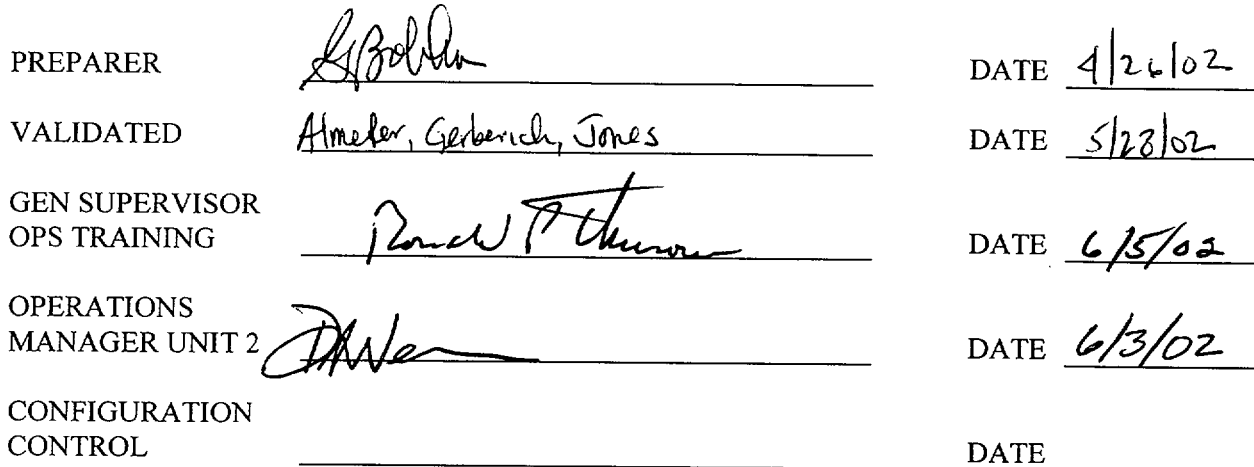 PREPARER DATE 4/26/02
VALIDATED Almeter, Gerberich, Jones DATE 5/28/02
GEN SUPERVISOR
OPS TRAINING Ronald DATE 6/5/02
OPERATIONS
MANAGER UNIT 2 DATE 6/3/02
CONFIGURATION
CONTROL DATE